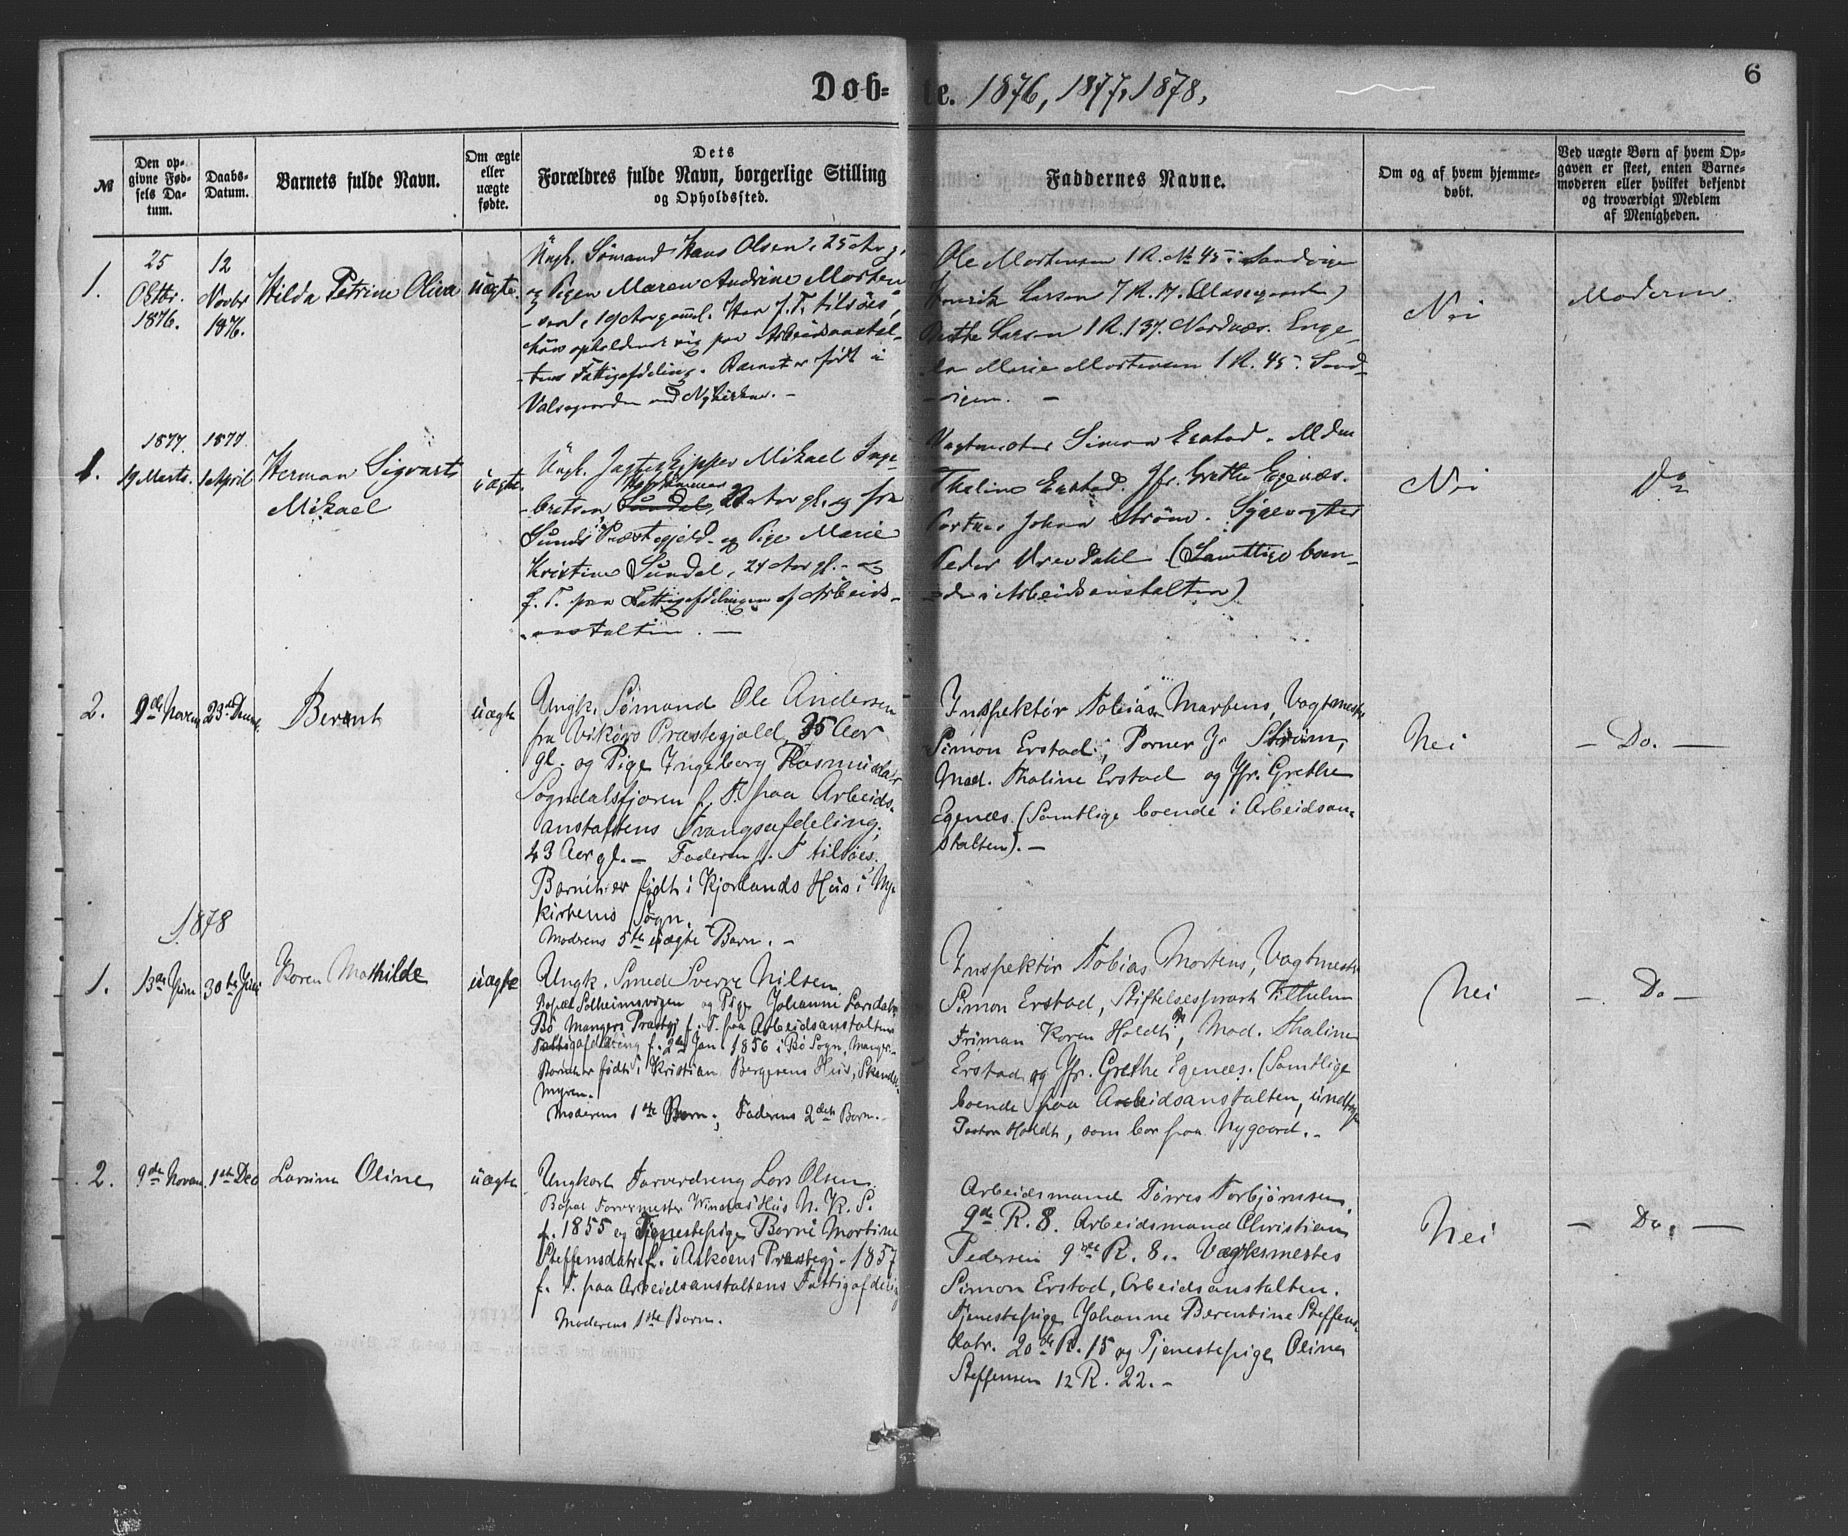 Døb-te. 1876, 1877, 1878,
6
№
Den op-
givne Fød-
sels Da-
tum.
Daabs-
Datum.
Barnets fulde Navn.
Om ægte
eller
uægte
fødte.
Dets
Forældres fulde Navn, borgerlige Stilling
og Opholdssted.
Faddernes Navne.
Om og af hvem hjemme-
døbt.
Ved uægte Børn af hvem Op-
gaven er skeet, enten Barne-
moderen eller hvilket bekjendt
og troværdigt Medlem
af Menigheden.
1.
25
Oktbr.
1876.
12
Novbr
1876.
Hilda Petrine Oliva
uægte.
Ungk. Sømand Hans Olsen, 25 Aar g.
og Pigen Maren Andrine Morten-
sen, 19 Aar gaml. Han f. T. tilsøes,
hun opholdende sig paa Arbeidsanstal-
tens Fattigafdeling. Barnet er født i
Valsegaarden ved Nykirken. -
Ole Mortensen 1 R. № 45 i Sandvigen
Henrik Larsen 7 R. 17.
Larsen 1 R. 137. Nordnæs. Enge-
Marie Mortensen 1 R. 45. Sand-
-vigen. -
Nei
Moderen.
1877
1.
19 Marts.
1877
1 April
Herman Sigvart
Mikael
uægte.
Ungk. Jagteskipper Mikael Inge-
-bretsen Sundal, Aar gl. og fra
Sunds Præstegjeld. og Pige Marie
Kristine Sundal, 24 Aar gl. -
f. T. paa Fattigafdelingen af Arbeids-
-anstalten. -
Vagtmester Simon Erstad. Mdm
Thaline Erstad. Jfr. Grethe Egenæs.
Portner Johan Strøm. Sygevogter
Peder Urevdahl (Samtlige boen-
-de i Arbeidsanstalten)
Nei
Do
2.
9de Novem
23de Decem
Berent
uægte
Ungk. Sømand Ole Andersen
fra Vikørs Præstegjæld 35 Aar
gl. og Pige Ingeborg Rasmusdatr
Sogndalsfjøren f. T. paa Arbeids-
anstaltens Tvangsafdeling,
43 Aar gl. - Faderen f. T tilsøes.
Barnet er født i Kjorlands Hus i Ny-
kirkens Sogn.
Modrens 5te uægte Barn. -
Inspektør Tobias Martens, Vagtmester
Simon Erstad, Porner J. Strøm,
Mad. Thaline Erstad og Jfr. Grethe
Egenæs. (Samtlige boende i Arbeidsan-
stalten). -
Nei
- Do. -
1878
1.
13de Juni
30te Juni
Karen Mathilde
uægte
Ungk. Smed Sverre Nilsen
Bopæl Solheimsvigen og Pige Johanne Larsdatr
Bø Mangers Præstgj f. T. paa Arbeidsanstaltens
Fattigafdeling f. 2den Jan. 1856 i Bø Sogn, Manger.
Barnet er født i Kristian Bergesens Hus, Skandse-
myren.
Moderens 1ste Barn, Faderens 2det Barn. -
Inspektør Tobias Mortens, Vagtmester
Simon Erstad, Stiftelsespræst Vilhelm
Friman Koren Holdt, Mad. Thaline
Erstad og Jfr. Grethe Egenæs. (Samtlige
boende paa Arbeidsanstalten, undtagen
Pastor Holdt, som bor paa Nygaard. -
Nei
- Do -
2.
9de Novem
1ste Dec
Larsina Oline
uægte
Ungkarl Farverdreng Lars Olsen
Bopæl Farvermester Hus N. K. S.
f. 1855 og Tjenestepige Barne Mortine
Steffensdatr f. i Askøens Præstegj. 1857
f. T. paa Arbeidsanstaltens Fattigafdeling
Moderens 1ste Barn.
Arbeidsmand Tørres Torbjørnsen,
9de R. 8. Arbeidsmand Christian
Pedersen 9de R. 8. Vægtermester
Simon Erstad, Arbeidsanstalten.
Tjenestepige Johanne Berentine Steffens-
datr. 20de R. 15 og Tjenestepige Oline
Steffensen 12 R. 22. -
Nei
- Do. -